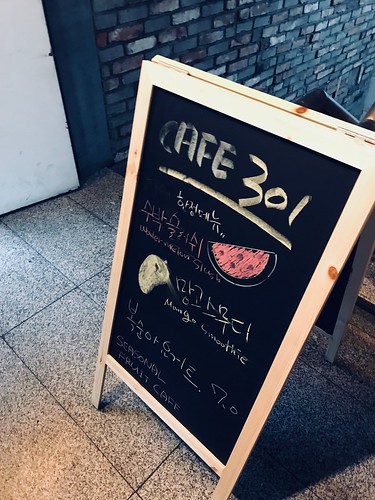 CAFE 301
한정메뉴,,
수박슬러쉬
Watermelon Slush
망고스무디
Mango Smoothie
복숭아요거트. 7.0
SEASONAL
FRUIT CAFE